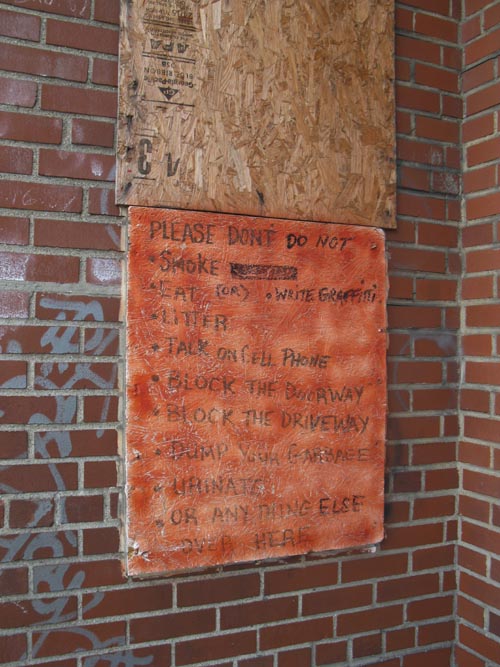 APA
3
4
PLEASE DON'T DO NOT
• SMOKE
• EAT (OR) • WRITE GRAFFITI
• LITTER
• TALK ON CELL PHONE
• BLOCK THE DOORWAY
• BLOCK THE DRIVEWAY
• DUMP YOUR GARBAGE
• URINATE
• OR ANYTHING ELSE
OVER HERE